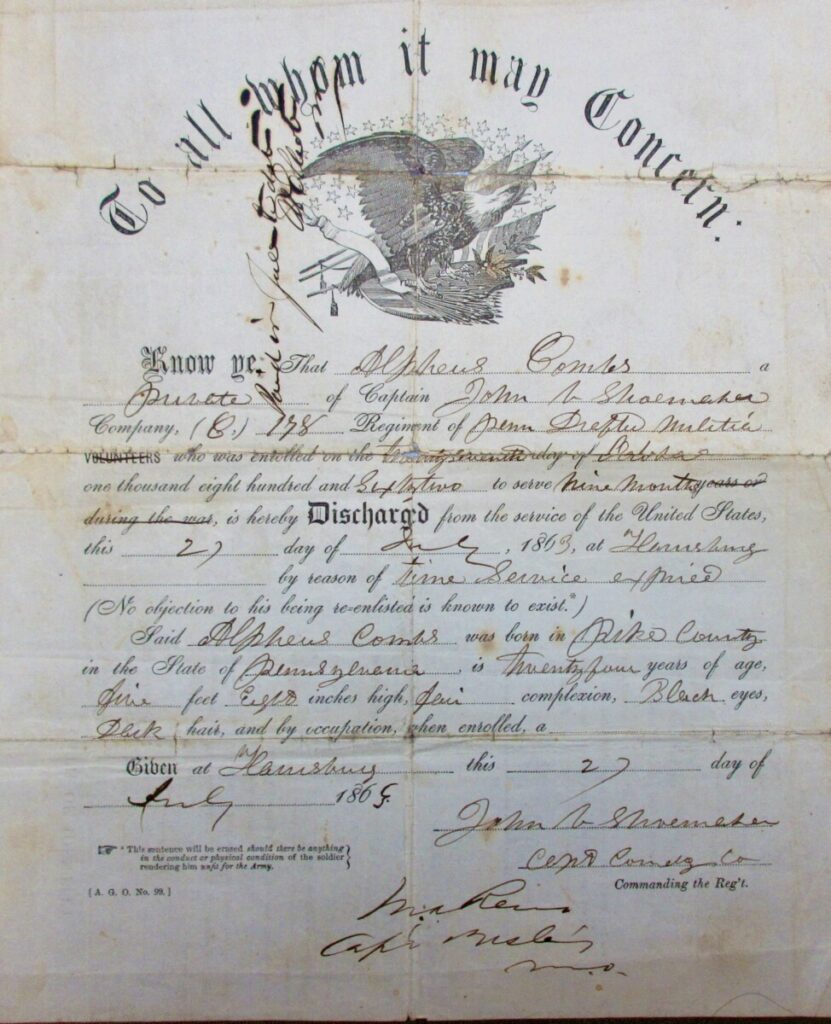 To all whom it may Concern:
Paid in full
Know ye, That Alpheus Combs a
Private of Captain John V Shoemaker
Company, (C.) 178 Regiment of Penn Drafted Militia
VOLUNTEERS who was enrolled on the twenty seventh day of October
one thousand eight hundred and Sixty two to serve Nine Months years or
during the war, is hereby Discharged from the service of the United States,
this 27 day of July, 1863, at Harrisburg
by reason of time Service expired
(No objection to his being re-enlisted is known to exist.*)
Said Alpheus Combs was born in Pike County
in the State of Pennsylvania, is twenty four years of age,
five feet Eight inches high, fair complexion, Black eyes,
Dark hair, and by occupation, when enrolled, a
Given at Harrisburg this 27 day of
July 1863.
John V Shoemaker
Capt Comdg Co
Commanding the Reg't.
* This sentence will be erased should there be anything
in the conduct or physical condition of the soldier
rendering him unfit for the Army.
[A. G. O. No. 99.]
Capt
M.O.